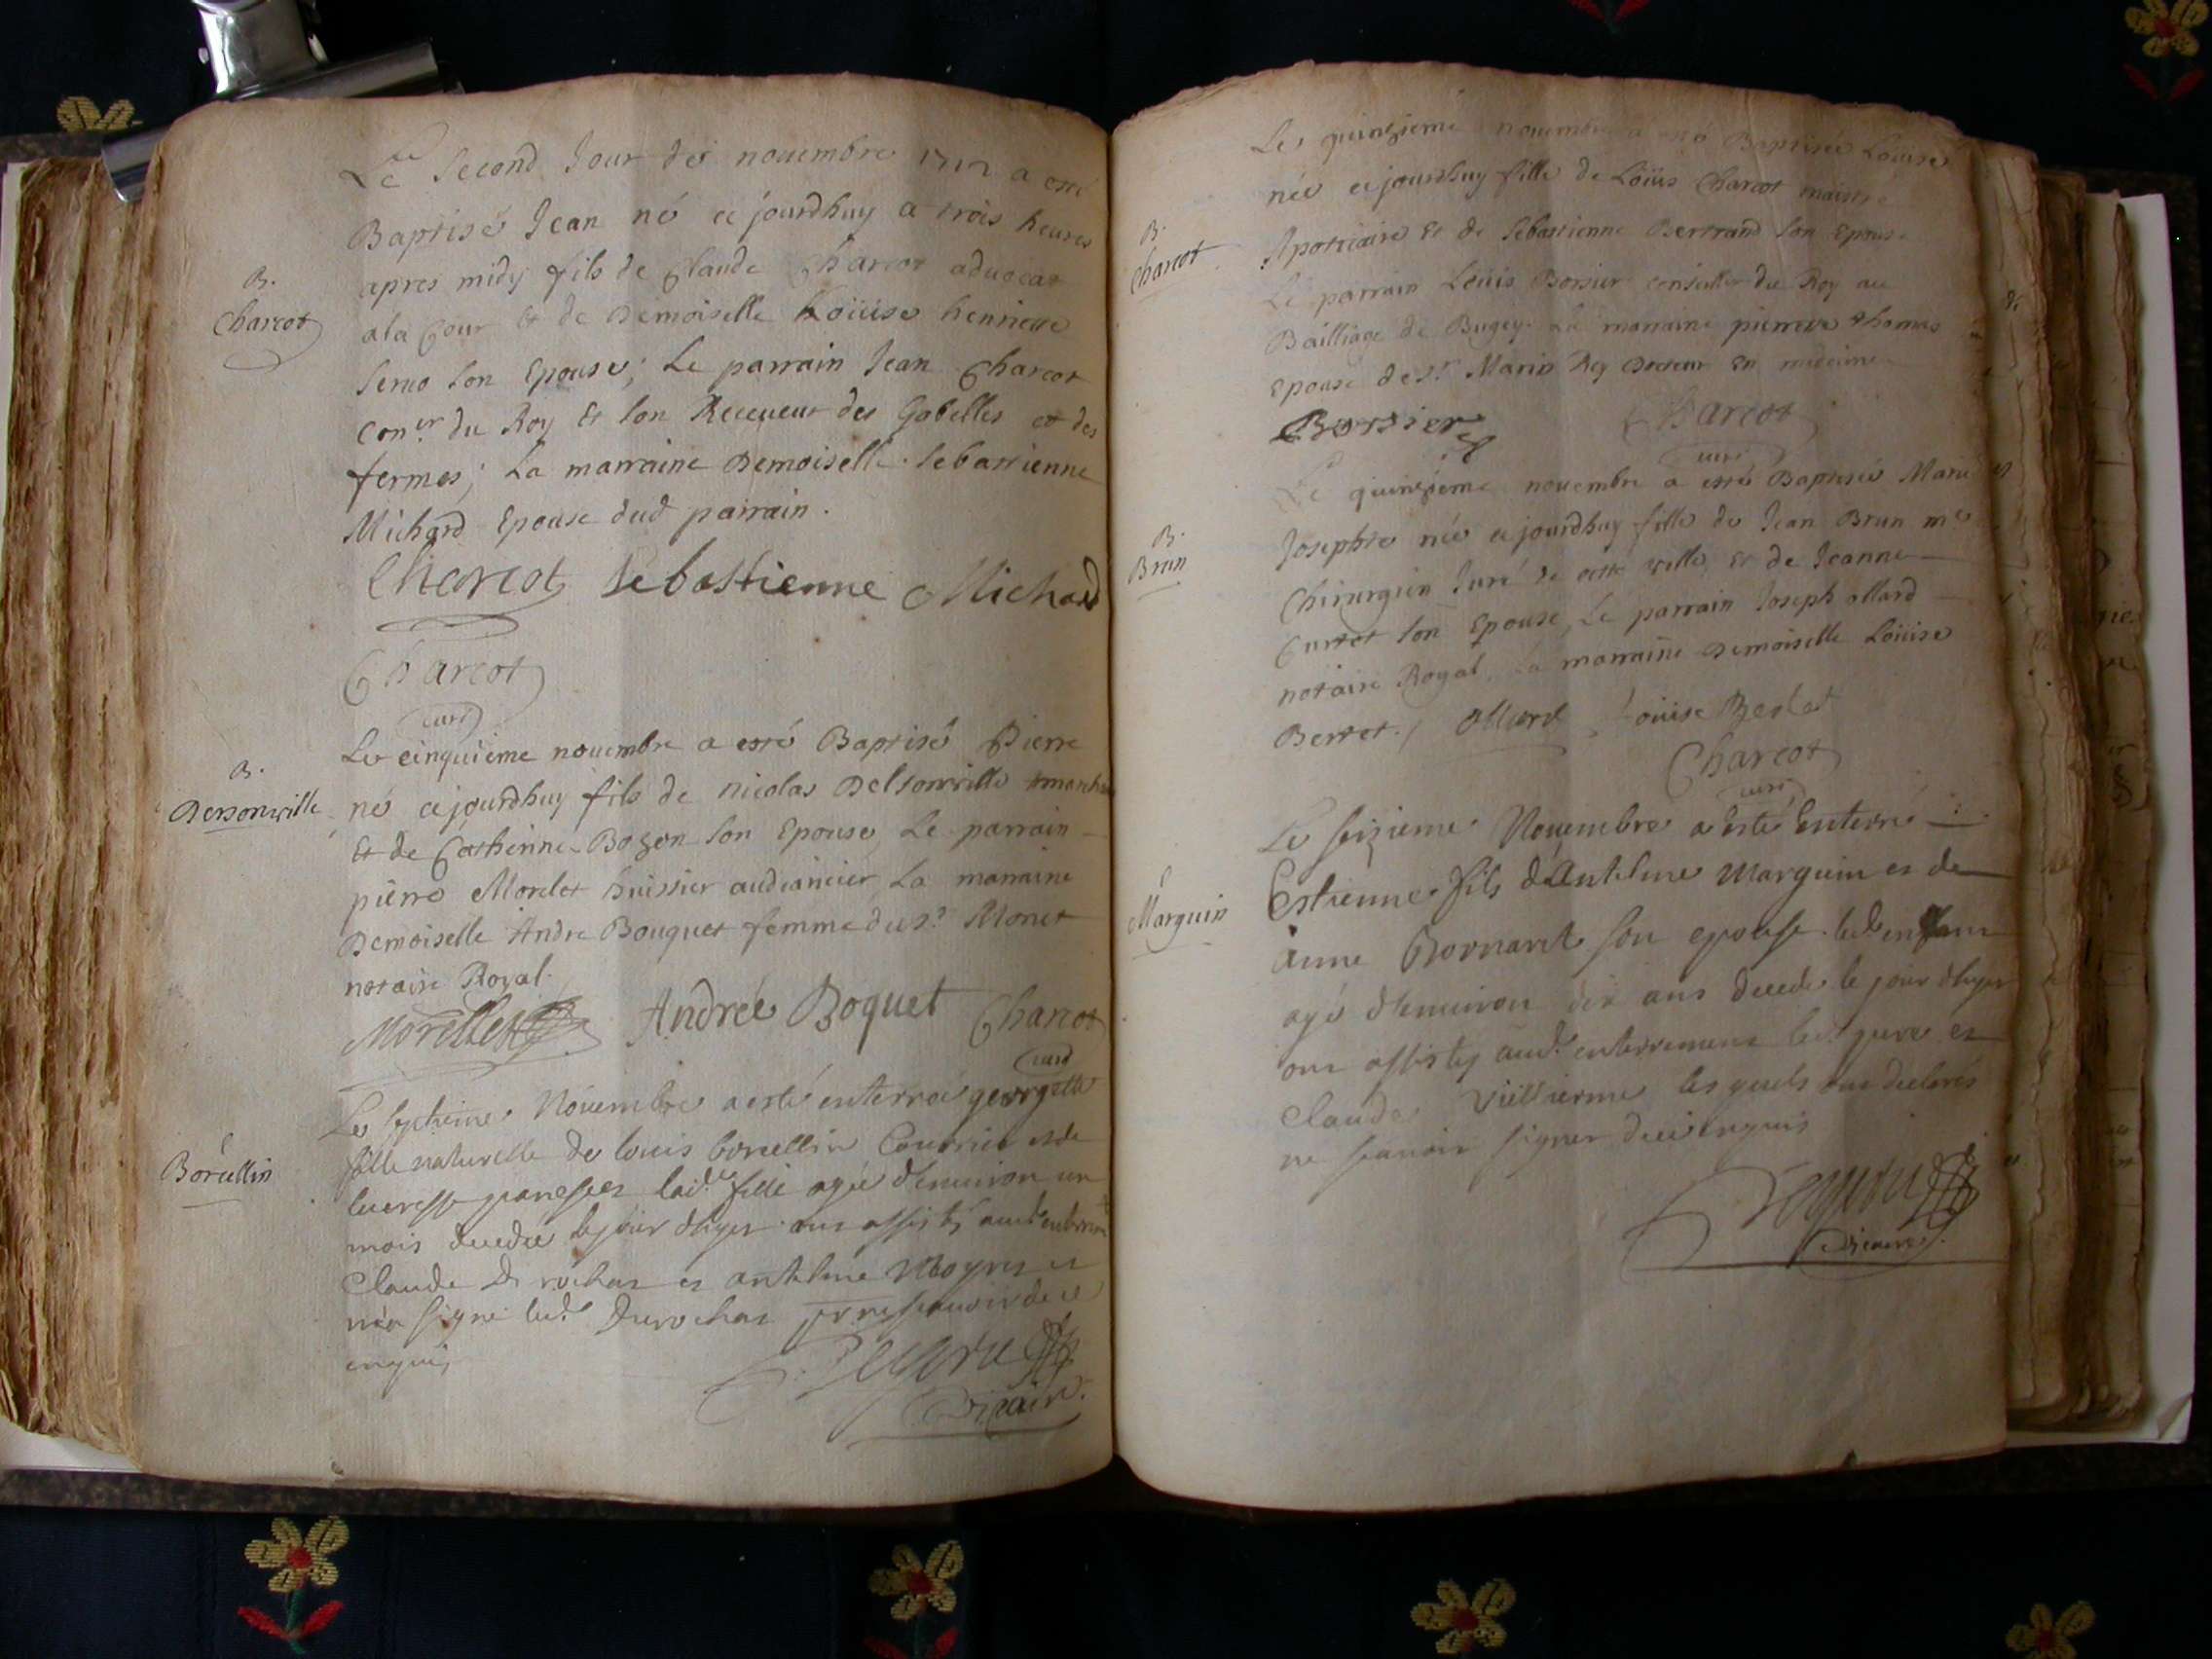 Le Second Jour de novembre 1712 a esté
Baptisé Jean né cejourdhuy a trois heures
apres midy fils de Claude Charcot advocat
B.
Charcot
a la Cour et de Demoiselle Loüise henriette
son Epouse; Le parrain Jean Charcot
con.er du Roy et son Receveur des Gabelles et des
fermes; La marraine Demoiselle Sebastienne
Michard Epouse dud parrain.
Charcot Sebastienne Michard
Charcot
curé
Le cinquième novembre a esté Baptisé Pierre
B.
Dersonville
né cejourdhuy fils de nicolas Delsonville
et de Catherine Bozon son Epouse Le parrain
pierre Morelet huissier audiancier La marraine
Demoiselle Andre Bouquet femme du Sr. Monet
notaire Royal.
Morellet Andrée Boquet Charcot
curé
Le septieme Novembre a esté enterrée georgette
fille naturelle de Louis borcellin et de
Borcellin
lad.e fille agée d'environ un
mois decedée le jour d'hyer ont assistés aud. enterrem.
Claude Durochat et anthelme et
n'a signé led. Durochat de ce
enquis
vicaire.
Le quinzieme novembre a esté Baptisée Loüise
née cejourdhuy fille de Loüis Charcot maistre
B.
Charcot
Apoticaire et de Sebastienne Bertrand son Epouse
Le parrain Louis Borsier conseiller du Roy au
Bailliage de Bugey. La marraine pierrette thomas
Epouse de Sr. Marin Rey Docteur En medecine
Borsier Charcot
curé
Le quinzieme novembre a esté Baptisée Marie
B.
Brun
Josephte née cejourdhuy fille de Jean Brun me
Chirurgien Juré de cette ville et de Jeanne
Curtet son Epouse, Le parrain Joseph ollard
notaire Royal, La marraine Demoiselle Loüise
Bertet. / Ollard Louise Bertet
Charcot
curé
Le seizieme Novembre a Esté Enterré
Marguin
Estienne fils d'Anthelme Marguin et de
anne Bornard son epouse led. enfant
agé d'environ dix ans decedé le jour d'hyer
ont assistés aud. enterrement led. pere et
Claude Vuillierme lesquels ont declarés
ne scavoir signer de ce enquis
vicaire.